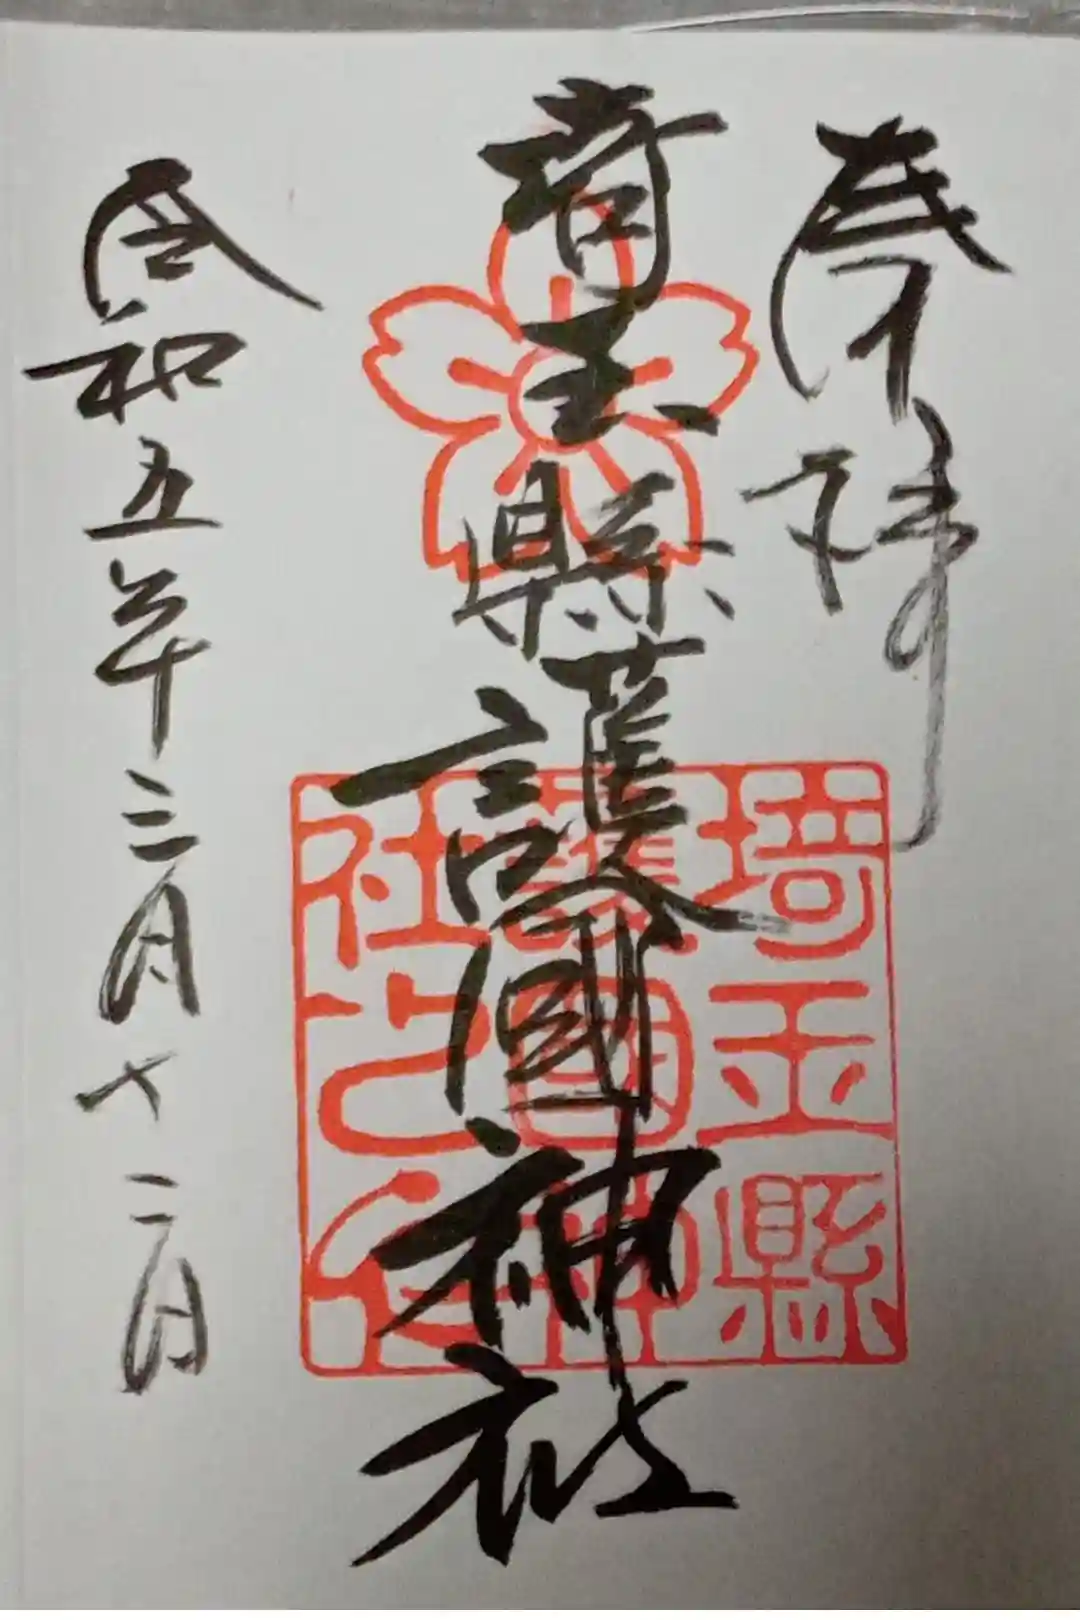 奉拝
埼玉縣護國神社
令和五年三月十二日
埼玉縣
護國神
社之印